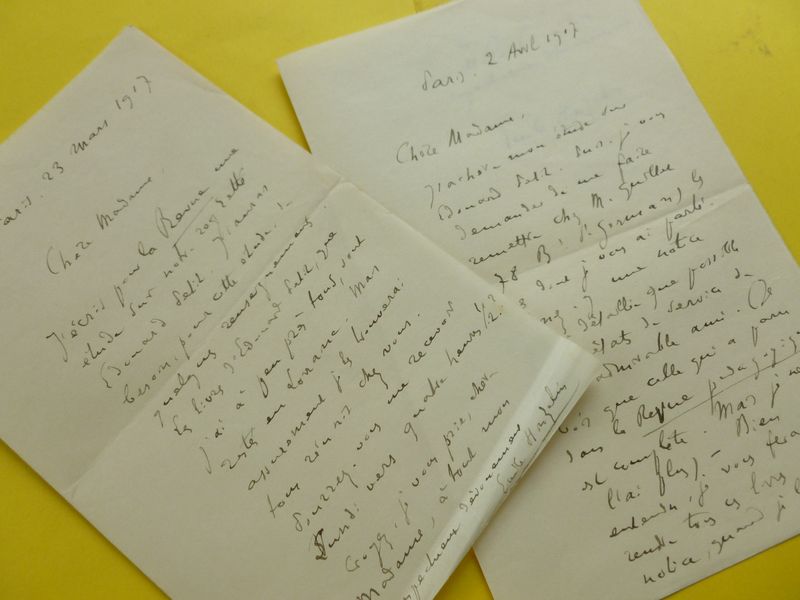 Paris. 23 mars 1917
Chère Madame,
J'écris pour la Revue une
étude sur notre regretté
Edouard Petit. J'aurais
besoin, pour cette étude, de
quelques renseignements.
Les livres d'Edouard Petit, que
j'ai à peu près tous, sont
restés en Lorraine. Mais
assurément je les trouverai
tous réunis chez vous.
Pourrez-vous me recevoir
lundi vers quatre heures 1/2
Croyez, je vous prie, chère
Madame, à tout mon
Emile Hinzelin
Paris. 2 Avril 1917
Chère Madame,
J'achève mon étude sur
Edouard Petit. Puis-je vous
demander de me faire
remettre chez M. Guillou
78 Bd St Germain) les
dont je vous ai parlé
une notice
détaillée que possible
états de service de
admirable ami. (Je
que celle qui a paru
dans la Revue pédagogique
est complète. Mais je ne
l'ai plus). - Bien
entendu, je vous ferai
rendre tous ces livres
notice, quand je